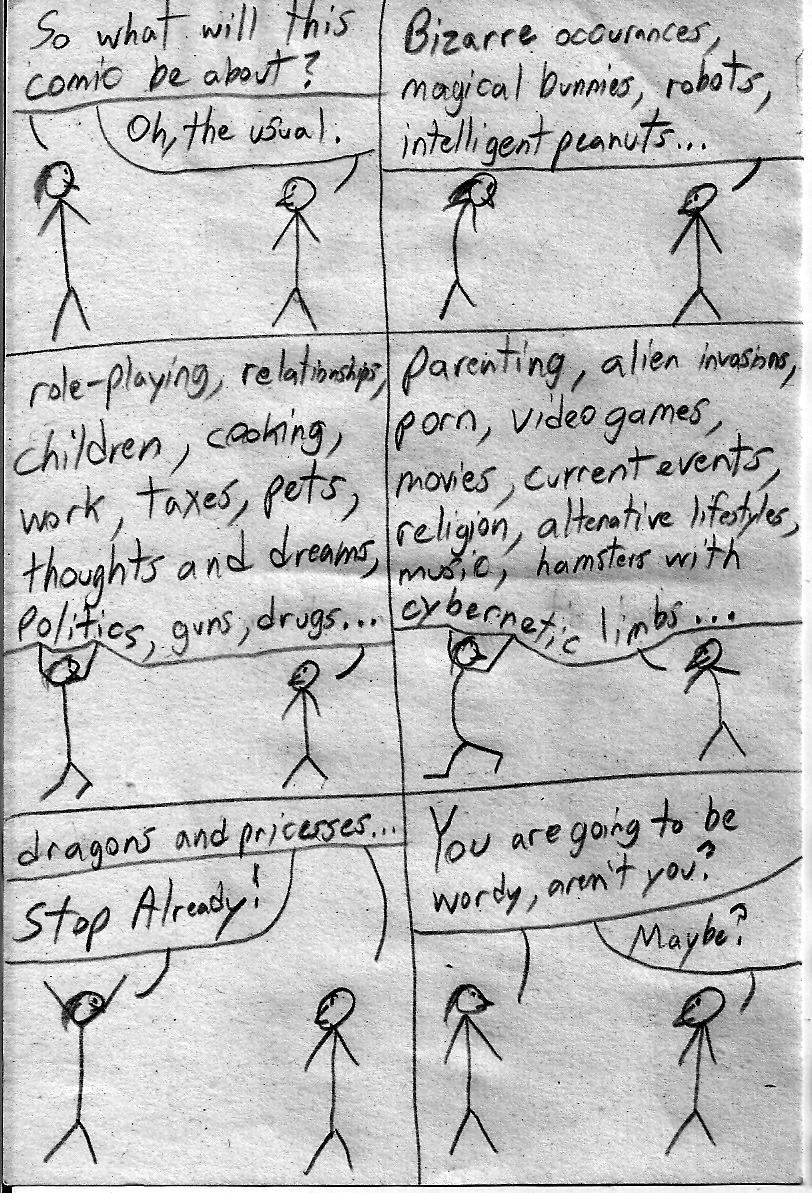 So what will this
comic be about?
Oh, the usual.
Bizarre occurances,
magical bunnies, robots,
intelligent peanuts...
role-playing, relationships,
children, cooking,
work, taxes, pets,
thoughts and dreams,
politics, guns, drugs...
parenting, alien invasions,
porn, video games,
movies, current events,
religion, altenative lifestyles,
music, hamsters with
cybernetic limbs...
dragons and pricesses...
Stop Already!
You are going to be
wordy, aren't you?
Maybe?